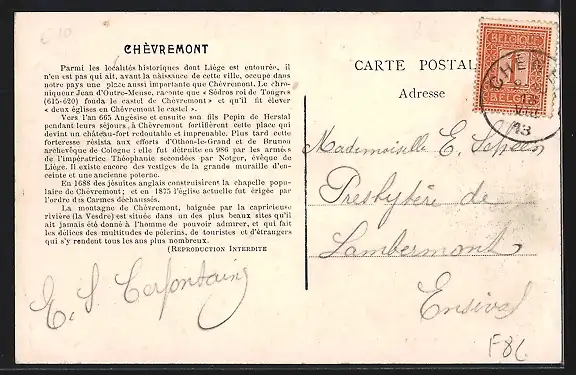 CHÈVREMONT
Parmi les localités historiques dont Liége est entourée, il
n'en est pas qui ait, avant la naissance de cette ville, occupé dans
notre pays une place aussi importante que Chèvremont. Le chro-
niqueur Jean d'Outre-Meuse, raconte que « Sédros roi de Tongrs
(615-620) fonda le castel de Chèvremont » et qu'il fit élever
« deux églises en Chèvremont le castel ».
Vers l'an 665 Angésise et ensuite son fils Pepin de Herstal
pendant leurs séjours, à Chèvremont fortifièrent cette place qui
devint un château-fort redoutable et imprenable. Plus tard cette
forteresse résista aux efforts d'Othon-le-Grand et de Brunon
archevêque de Cologne : elle fut détruite en 986 par les armées
de l'impératrice Théophanie secondées par Notger, évêque de
Liége. Il existe encore des vestiges de la grande muraille d'en-
ceinte et une ancienne poterne.
En 1688 des jésuites anglais construisirent la chapelle popu-
laire de Chèvremont; et en 1875 l'église actuelle fut érigée par
l'ordre des Carmes déchaussés.
La montagne de Chèvremont, baignée par la capricieuse
rivière (la Vesdre) est située dans un des plus beaux sites qu'il
ait jamais été donné à l'homme de pouvoir admirer, et qui fait
les délices des multitudes de pèlerins, de touristes et d'étrangers
qui s'y rendent tous les ans plus nombreux.
(REPRODUCTION INTERDITE
CARTE POSTAL
Adresse
BELGIË
1
13
Mademoiselle E.
Presbytère de
Lambermont
Ensival
E. S. Cerfontaine
F8